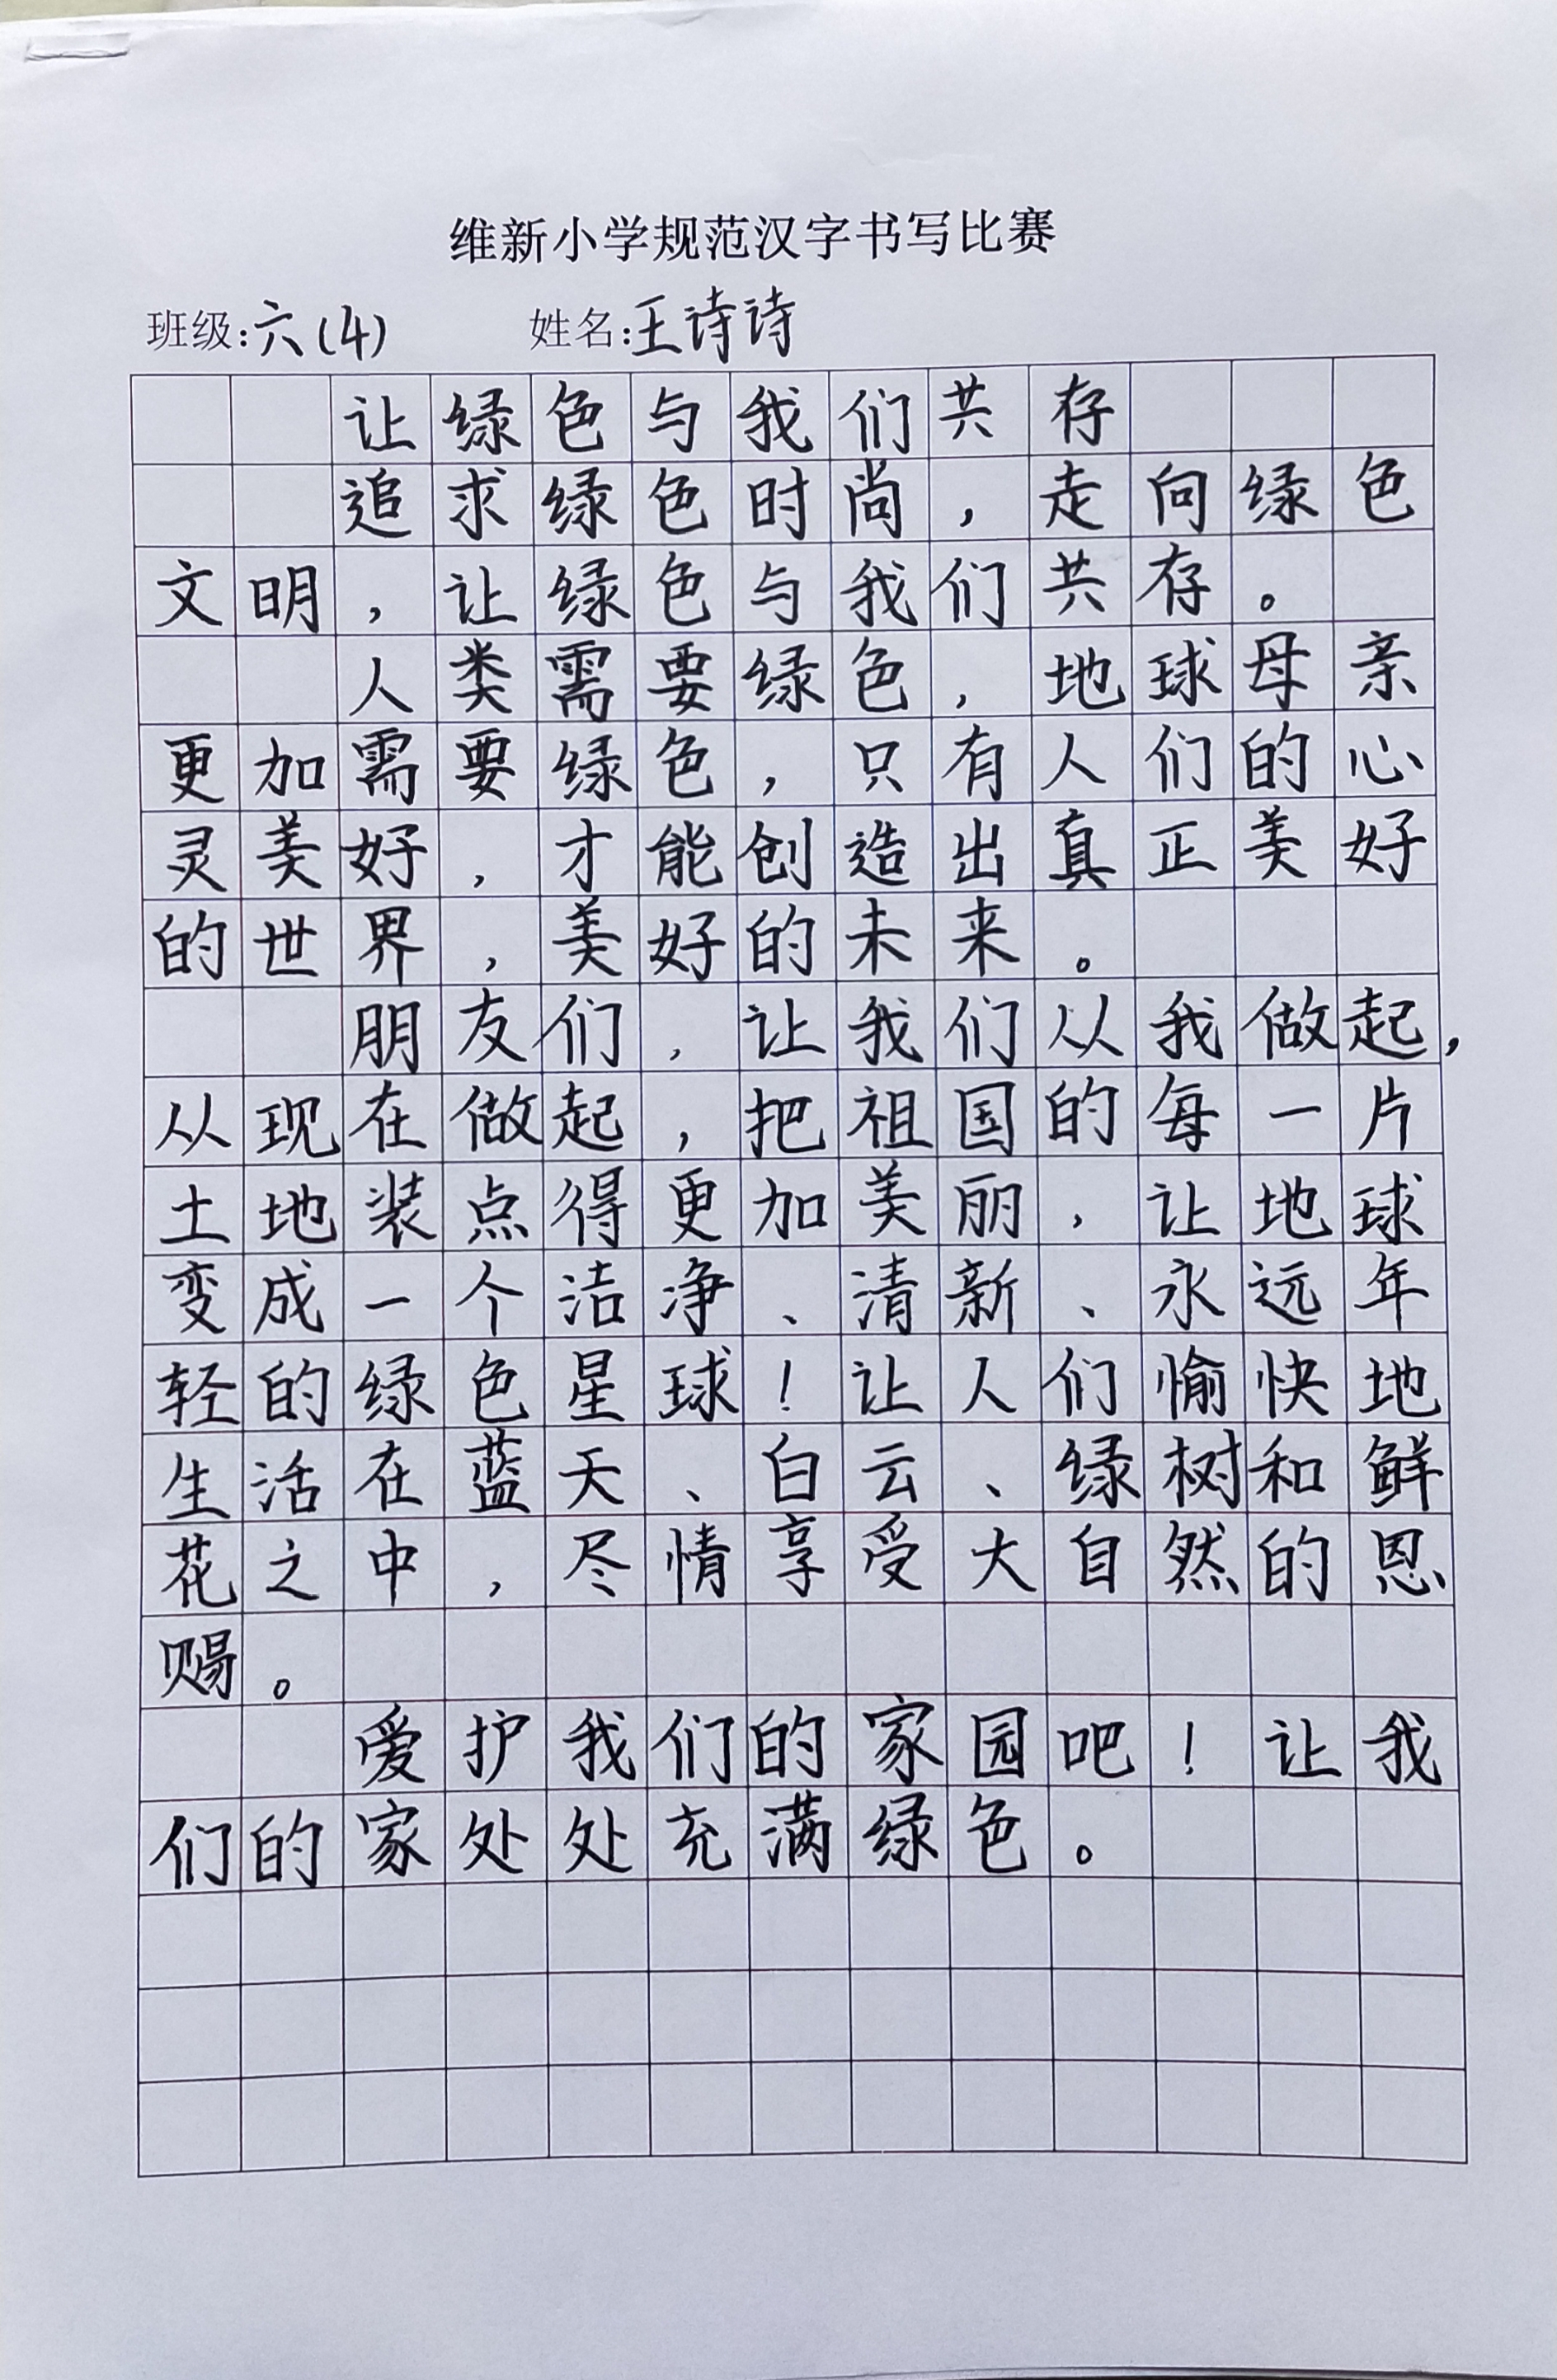 维新小学规范汉字书写比赛
班级:六(4) 姓名:王诗诗
让绿色与我们共存
追求绿色时尚，走向绿色
文明，让绿色与我们共存。
人类需要绿色，地球母亲
更加需要绿色，只有人们的心
灵美好，才能创造出真正美好
的世界，美好的未来。
朋友们，让我们从我做起，
从现在做起，把祖国的每一片
土地装点得更加美丽，让地球
变成一个洁净、清新、永远年
轻的绿色星球！让人们愉快地
生活在蓝天、白云、绿树和鲜
花之中，尽情享受大自然的恩
赐。
爱护我们的家园吧！让我
们的家处处充满绿色。